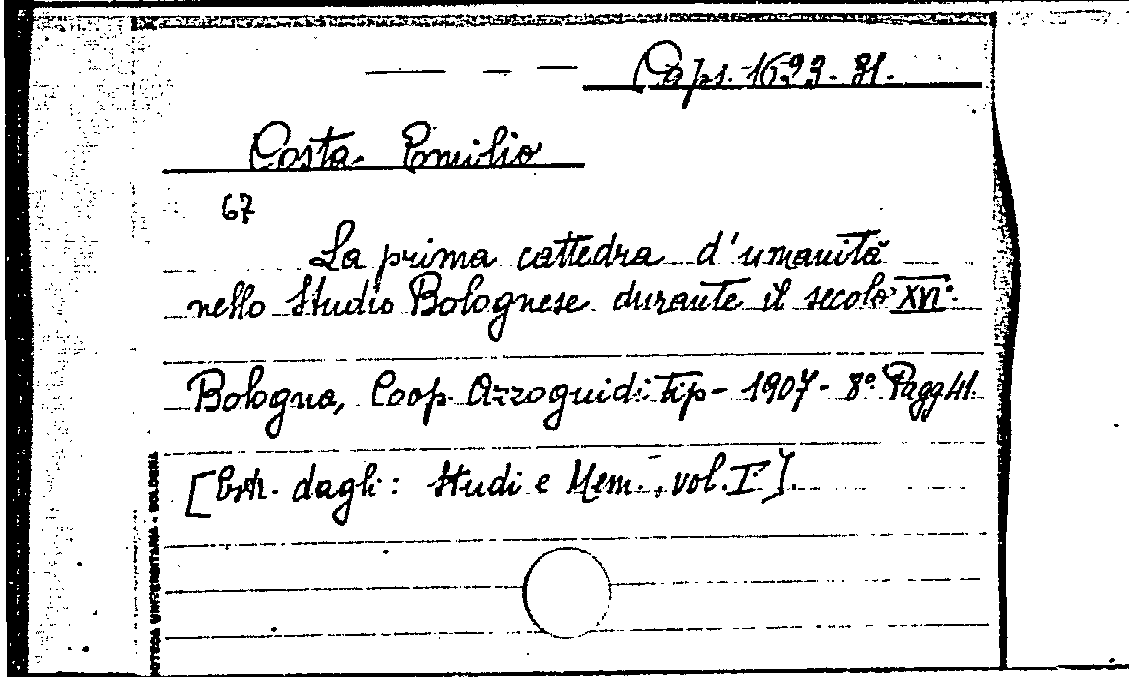 Caps. 1693. 31.
Costa Emilio
67
La prima cattedra d'umanità
nello Studio Bolognese durante il secolo XVI°.
Bologna, Coop. Azzoguidi Tip - 1907 - 8°. Pagg 41.
[Estr. dagli: Studi e Mem., vol. I°].
BIBLIOTECA UNIVERSITARIA - BOLOGNA